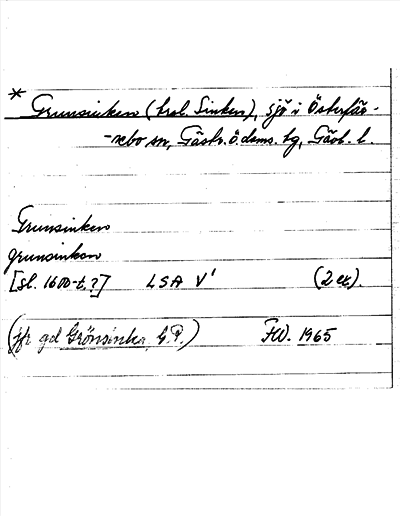 * Grunsinken (bml. Sinken), sjö i Österfär-
-nebo sn, Gästr. ö. doms. tg, Gävl. l.
Grunsinken
grunsinkan
[sl. 1600-t.?] LSA V¹ (2 ex.)
(jfr gd Grönsinka, G.P.) FW. 1965